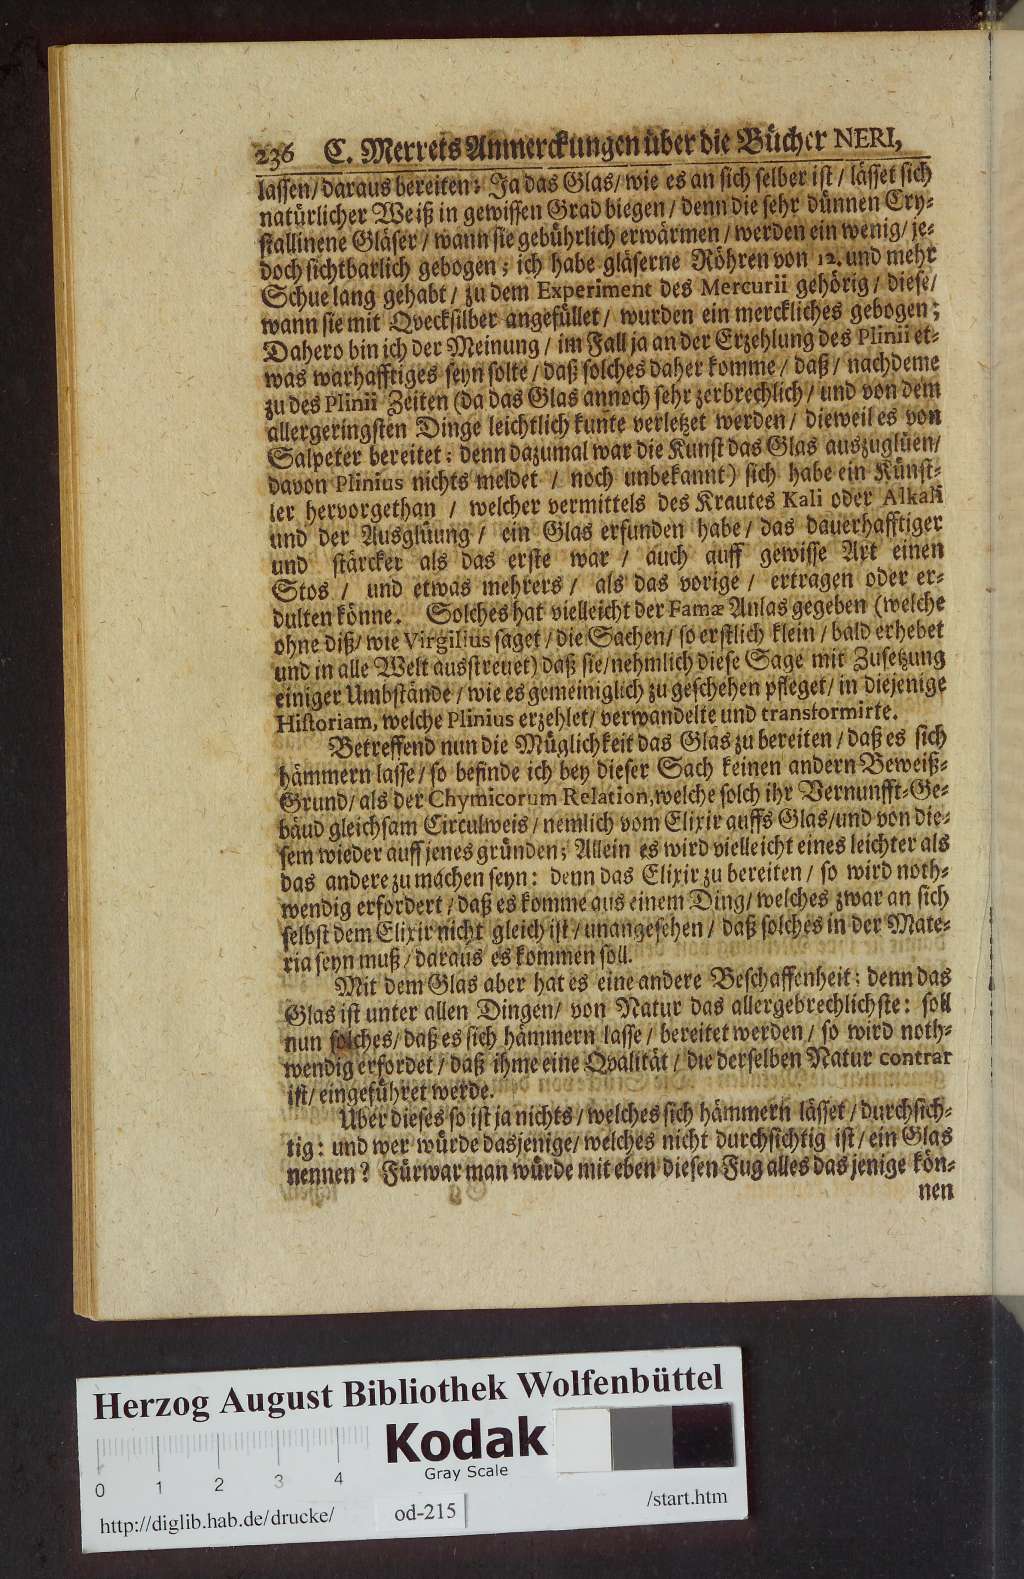 236 C. Merrets Anmerckungen über die Bücher NERI,
lassen/ daraus bereiten: Ja das Glas/ wie es an sich selber ist / lässet sich
natürlicher Weiß in gewissen Grad biegen / denn die sehr dünnen Cry-
stallinene Gläser / wann sie gebührlich erwärmen / werden ein wenig/ je-
doch sichtbarlich gebogen; ich habe gläserne Röhren von 12. und mehr
Schue lang gehabt / zu dem Experiment des Mercurii gehörig / diese/
wann sie mit Qvecksilber angefüllet / wurden ein merckliches gebogen;
Dahero bin ich der Meinung / im Fall ja an der Erzehlung des Plinii et-
was warhafftiges seyn solte / daß solches daher komme / daß / nachdeme
zu des Plinii Zeiten (da das Glas annoch sehr zerbrechlich / und von dem
allergeringsten Dinge leichtlich kunte verletzet werden / dieweil es von
Salpeter bereitet: denn dazumal war die Kunst das Glas auszuglüen/
davon Plinius nichts meldet / noch unbekannt) sich habe ein Künst-
ler hervorgethan / welcher vermittels des Krautes Kali oder Alkali
und der Ausglüung / ein Glas erfunden habe / das dauerhafftiger
und stärcker als das erste war / auch auff gewisse Art einen
Stos / und etwas mehrers / als das vorige / ertragen oder er-
dulten könne. Solches hat vielleicht der Famæ Anlas gegeben (welche
ohne diß/ wie Virgilius saget / die Sachen/ so erstlich klein / bald erhebet
und in alle Welt ausstreuet) daß sie/ nehmlich diese Sage mit Zusetzung
einiger Umbstände / wie es gemeiniglich zu geschehen pfleget/ in diejenige
Historiam, welche Plinius erzehlet/ verwandelte und transformirte.
Betreffend nun die Müglichkeit das Glas zu bereiten / daß es sich
hämmern lasse / so befinde ich bey dieser Sach keinen andern Beweiß-
Grund/ als der Chymicorum Relation, welche solch ihr Vernunfft-Ge-
bäud gleichsam Circulweis / nemlich vom Elixir auffs Glas/ und von die-
sem wieder auff jenes gründen; Allein es wird vielleicht eines leichter als
das andere zu machen seyn: denn das Elixir zu bereiten / so wird noth-
wendig erfordert / daß es komme aus einem Ding/ welches zwar an sich
selbst dem Elixir nicht gleich ist / unangesehen / daß solches in der Mate-
ria seyn muß / daraus es kommen soll.
Mit dem Glas aber hat es eine andere Beschaffenheit: denn das
Glas ist unter allen Dingen/ von Natur das allergebrechlichste: soll
nun solches/ daß es sich hämmern lasse / bereitet werden / so wird noth-
wendig erfordet / daß ihme eine Qvalität / die derselben Natur contrar
ist/ eingeführet werde.
Uber dieses so ist ja nichts / welches sich hämmern lässet / durchsich-
tig: und wer würde dasjenige/ welches nicht durchsichtig ist / ein Glas
nennen? Fürwar man würde mit eben diesen Fug alles das jenige kön-
nen
Herzog August Bibliothek Wolfenbüttel
Kodak
Gray Scale
0 1 2 3 4
http://diglib.hab.de/drucke/ od-215 /start.htm